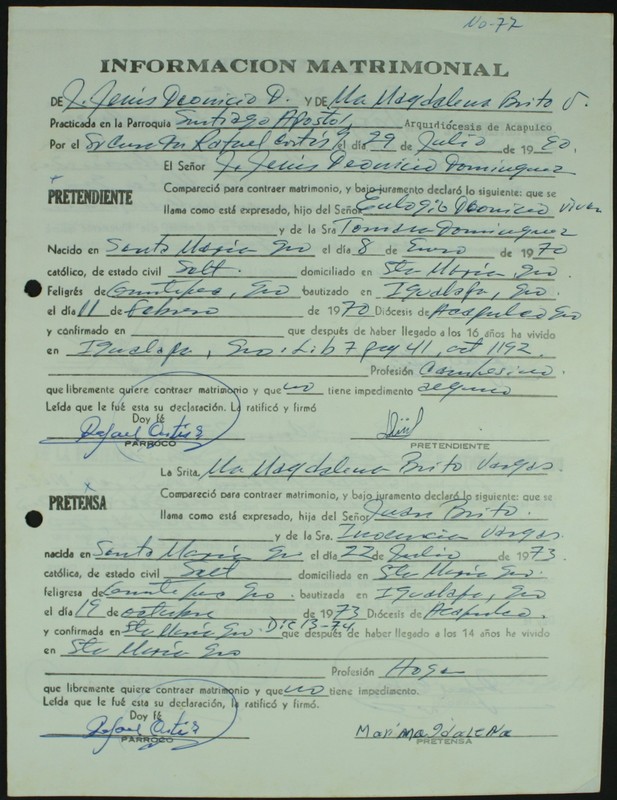 No-77
INFORMACION MATRIMONIAL
DE J. Jesús Deonicio D. Y DE Ma Magdalena Brito V.
Practicada en la Parroquia Santiago Apóstol Arquidiócesis de Acapulco
Por el Sr Cura Rafael Ortís el día 29 de Julio de 1990
El Señor J. Jesús Deonicio Dominguez
PRETENDIENTE
Compareció para contraer matrimonio, y bajo juramento declaró lo siguiente: que se
llama como está expresado, hijo del Señor Eulogio Deonicio viven
y de la Sra Tomasa Dominguez
Nacido en Santa María Gro el día 8 de Enero de 1970
católico, de estado civil Solt. domiciliado en Sta María, Gro.
Feligrés de Cuautepec, Gro bautizado en Igualapa, Gro.
el día 11 de Febrero de 1970 Diócesis de Acapulco Gro
y confirmado en que después de haber llegado a los 16 años ha vivido
en Igualapa, Gro. Lib 7 pag 41, act 1192.
Profesión Campesino.
que libremente quiere contraer matrimonio y que no tiene impedimento alguno
Leída que le fué esta su declaración. La ratificó y firmó
Doy fé
Rafael Ortís
PARROCO
PRETENDIENTE
La Srita. Ma Magdalena Brito Vargas.
PRETENSA
Compareció para contraer matrimonio, y bajo juramento declaró lo siguiente: que se
llama como está expresado, hija del Señor Juan Brito.
y de la Sra. Inocencia Vargas
nacida en Santa María Gro el día 22 de Julio de 1973.
católica, de estado civil Solt domiciliada en Sta María Gro.
feligresa de Cuautepec Gro. bautizada en Igualapa, Gro
el día 19 de octubre de 1973 Diócesis de Acapulco.
y confirmada en Sta María Gro. Dic 13-74 que después de haber llegado a los 14 años ha vivido
en Sta María Gro
Profesión Hogar
que libremente quiere contraer matrimonio y que no tiene impedimento.
Leída que le fué esta su declaración, la ratificó y firmó.
Doy fé
Rafael Ortís
PARROCO
Maria magdalena
PRETENSA